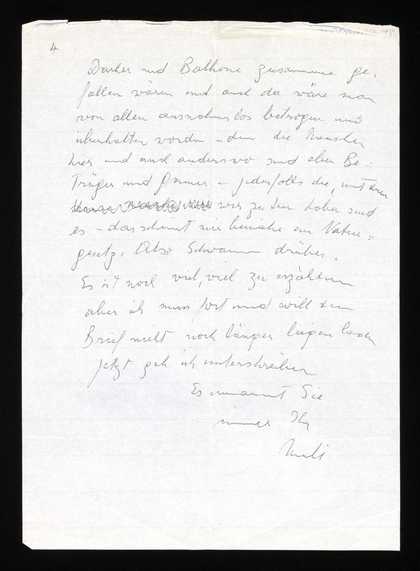 4
Dächer und Balkone zusammen ge-
fallen wären und auch da wäre man
von allen ausnahmslos betrogen und
überhalten worden – denn die Menschen
hier und auch anderswo sind eben Be-
trüger und – jedenfalls die, mit denen
wir zu tun haben sind
es – das scheint mir beinahe ein Natur-
gesetz. Also Schwamm drüber.
Es ist noch viel, viel zu erzählen
aber ich muss fort und will den
Brief nicht noch länger liegen lassen
Jetzt geh ich unterschreiben
Es umarmt Sie
immer Ihr